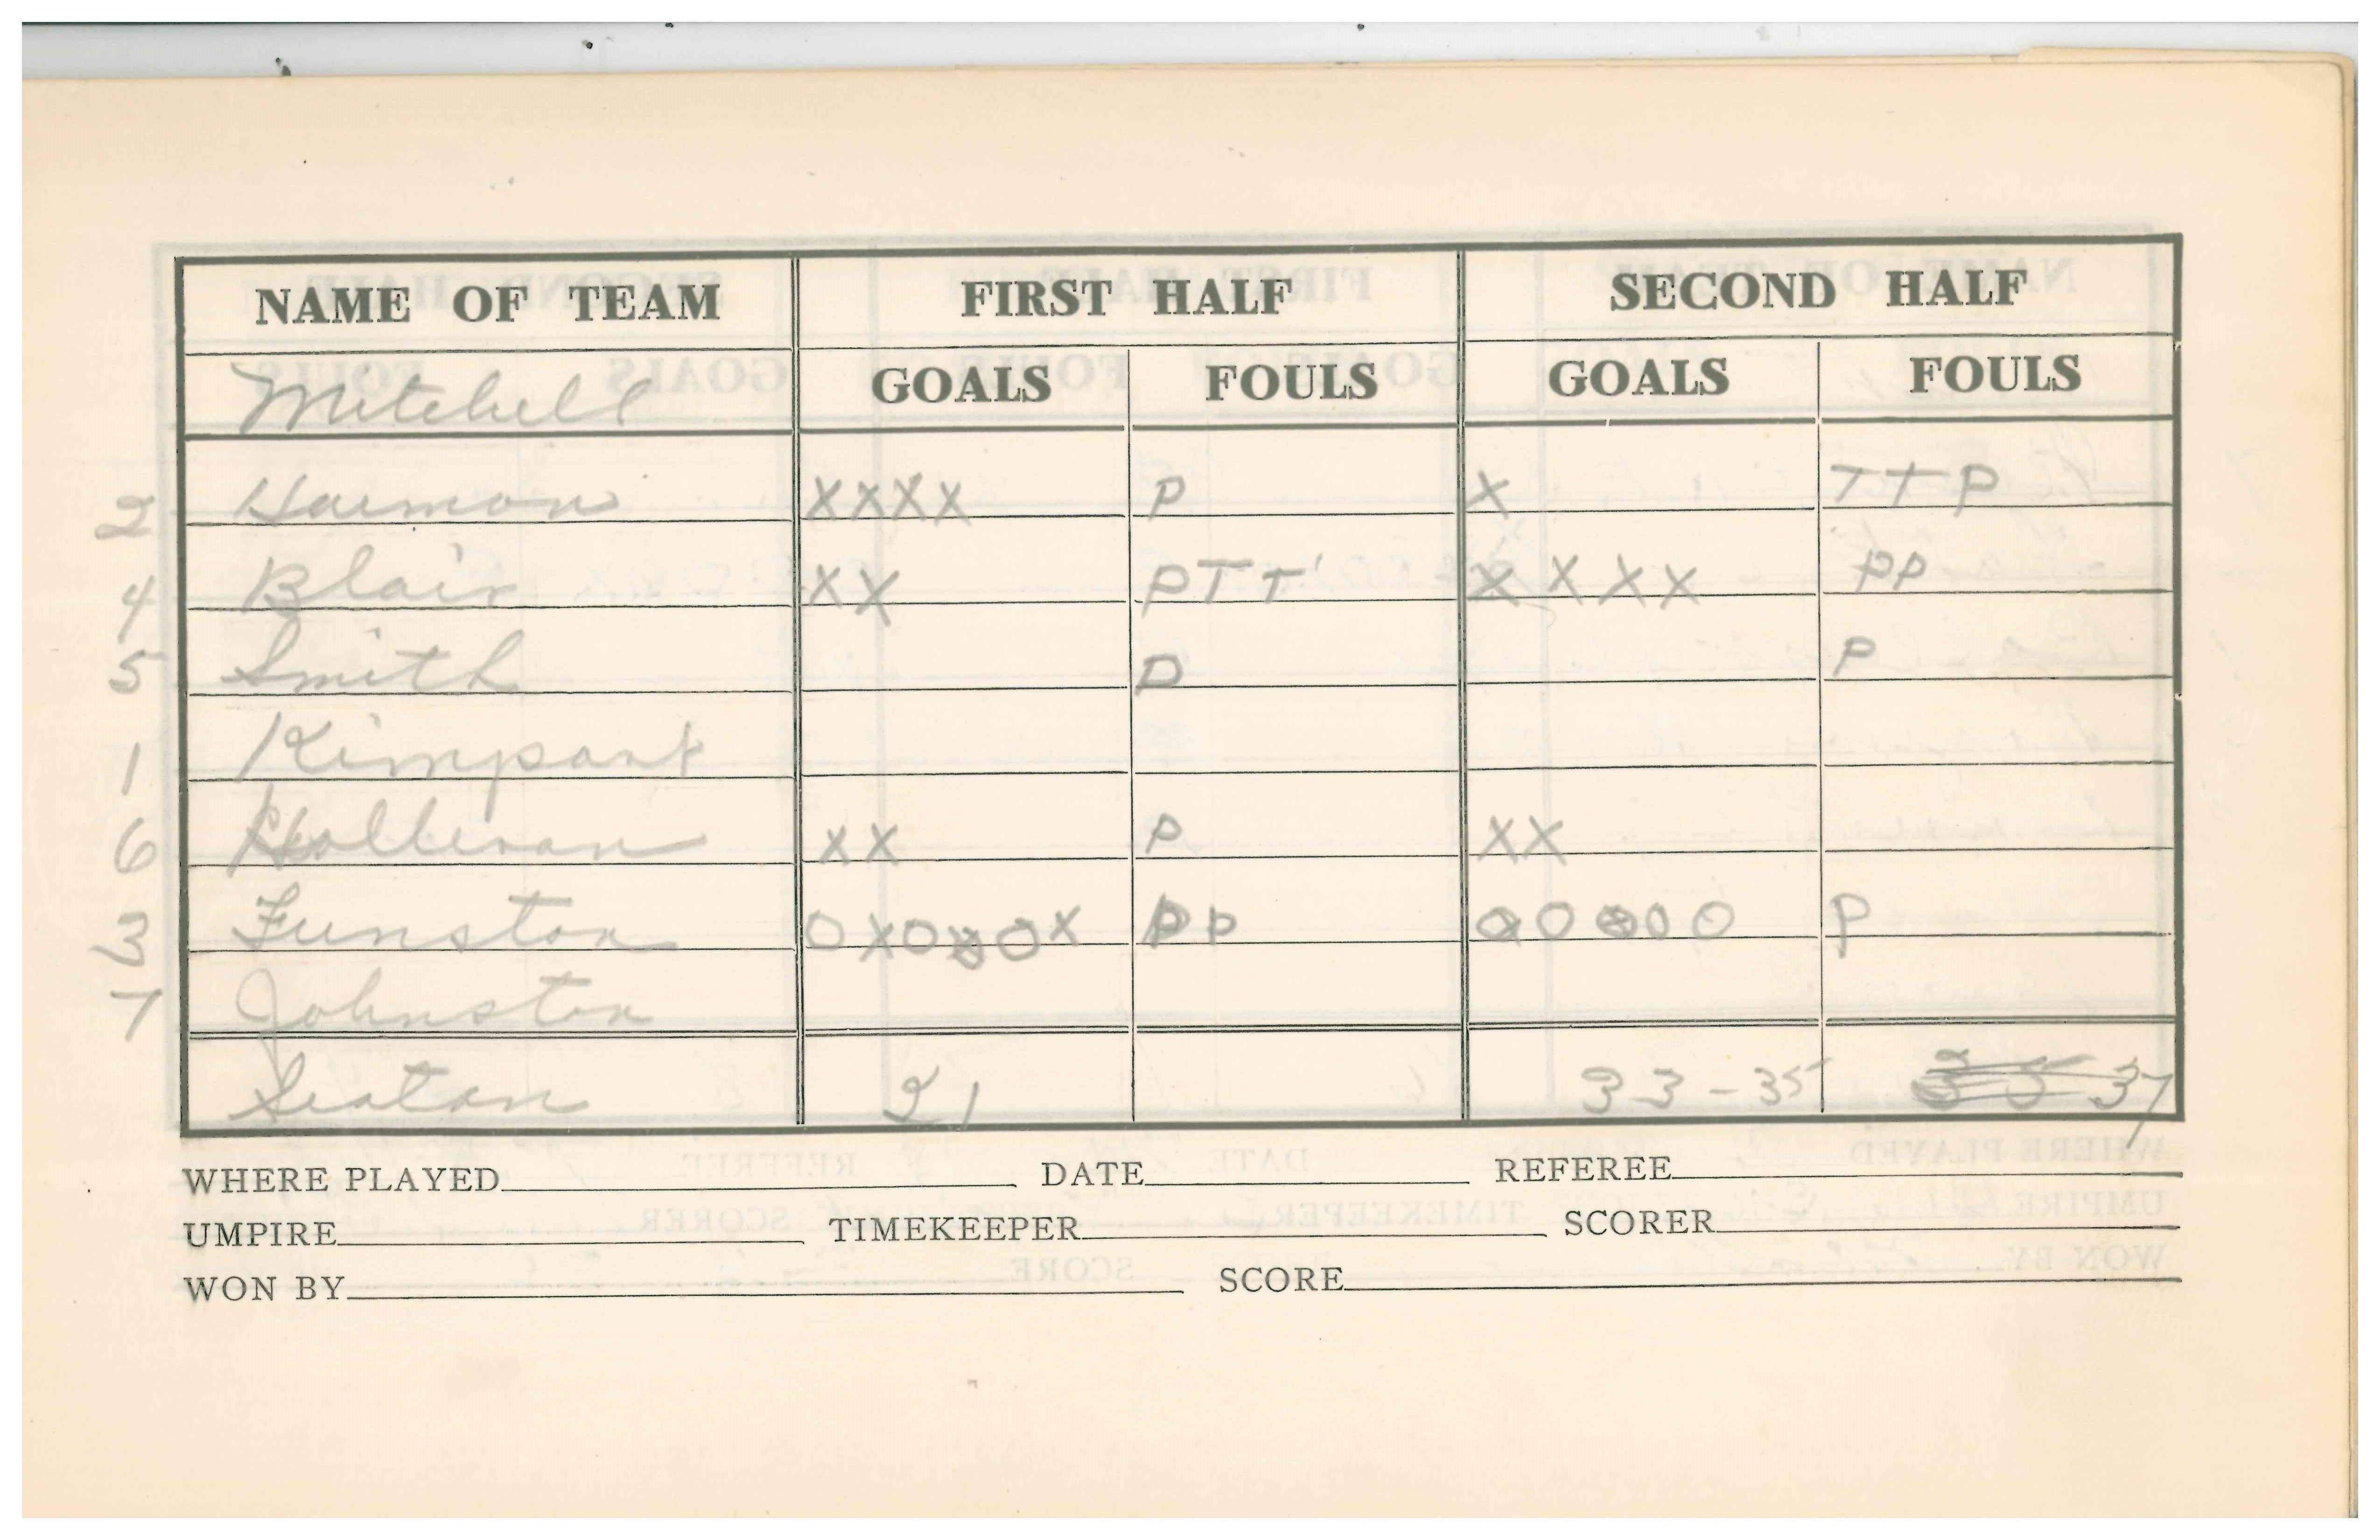 NAME OF TEAM FIRST HALF SECOND HALF
Mitchell GOALS FOULS GOALS FOULS
2 Harmon XXXX P X TTP
4 Blair XX PTT X XXX PP
5 Smith P P
1 Kimpart
6 Holleran XX P XX
3 Funston PP P
7 Johnston
Seaton 21 33-35 37
WHERE PLAYED DATE REFEREE
UMPIRE TIMEKEEPER SCORER
WON BY SCORE